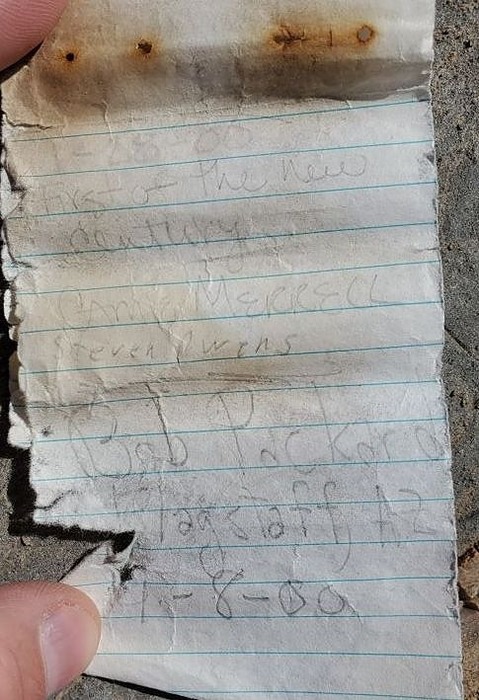 1-28-00
First of the new
century
MERRELL
Steven Owens
Bob Packard
Flagstaff AZ
-8-00